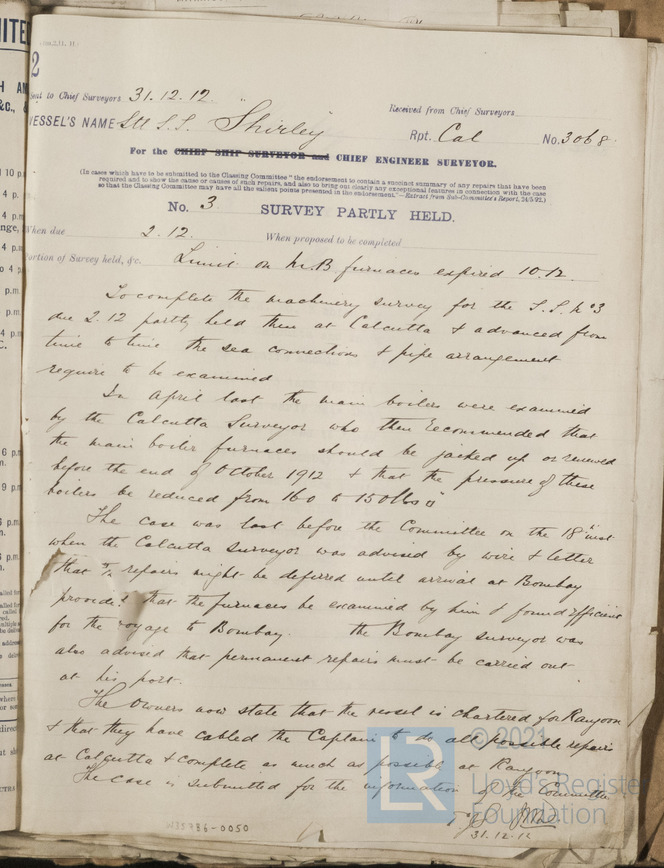 2
Sent to Chief Surveyors 31.12.12.
Received from Chief Surveyors
VESSEL'S NAME S.S. Shirley
Rpt. Cal No. 3068
For the CHIEF SHIP SURVEYOR and CHIEF ENGINEER SURVEYOR.
(In cases which have to be submitted to the Classing Committee "the endorsement to contain a succinct summary of any repairs that have been
required and to show the cause or causes of such repairs, and also to bring out clearly any exceptional features in connection with the case
so that the Classing Committee may have all the salient points presented in the endorsement."—Extract from Sub-Committee's Report, 24/3/92.)
No. 3 SURVEY PARTLY HELD.
When due 2.12. When proposed to be completed
Portion of Survey held, &c. Limit on M.B furnaces expired 10.12.
To complete the machinery survey for the S.S. No 3
due 2.12 partly held then at Calcutta & advanced from
time to time the sea connections & pipe arrangement
require to be examined
In April last the main boilers were examined
by the Calcutta Surveyor who then recommended that
the main boiler furnaces should be jacked up or renewed
before the end of October 1912 & that the pressure of these
boilers be reduced from 160 to 150 lbs
The case was last before the Committee on the 18th inst
when the Calcutta surveyor was advised by wire & letter
that repairs might be deferred until arrival at Bombay
provided that the furnaces be examined by him & found efficient
for the voyage to Bombay. the Bombay surveyor was
also advised that permanent repairs must be carried out
at his port.
The Owners now state that the vessel is chartered for Rangoon
& that they have cabled the Captain to do all possible repairs
at Calcutta & complete as much as possible at Rangoon
The case is submitted for the information of the Committee
31.12.12
W35786-0050
© 2021
LR
Lloyd's Register
Foundation